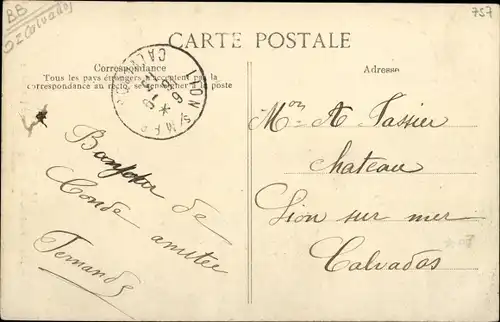 BB
Calvados
757
CARTE POSTALE
Correspondance
Tous les pays étrangers n'acceptent pas la
correspondance au recto, se renseigner à la poste
LION S/MER
Bonjour de
Conde amitee
Fernande
Adresse
Mon A Tassier
Chateau
Lion sur mer
Calvados